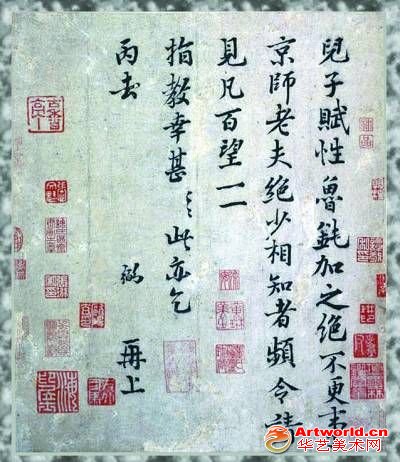 兒子賦性魯鈍加之絕不更事
京師老夫絕少相知者頻令請
見凡百望一一
指教幸甚〻〻此亦乞
丙去 弼 再上
Artworld.cn
华艺美术网